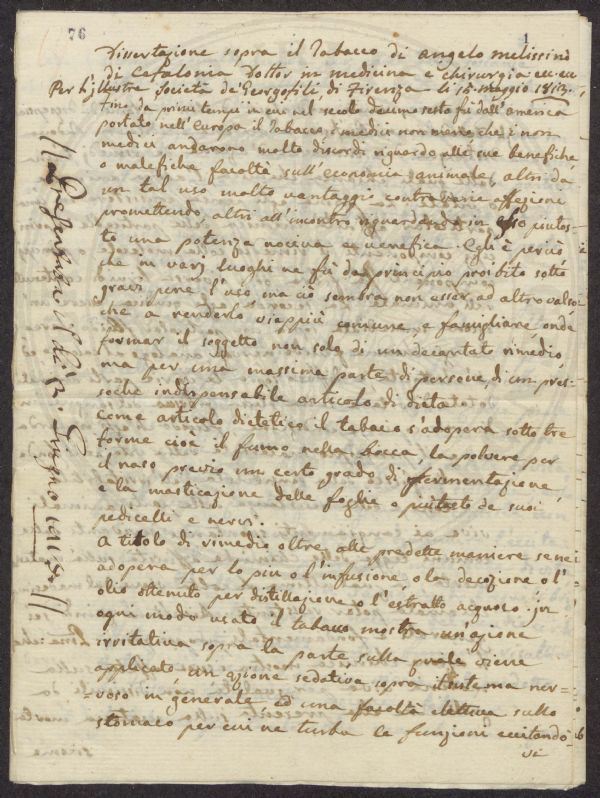 76
1
Dissertazione sopra il Tabacco di Angelo Melissinò
di Cefalonia Dottor in medicina e chirurgia ec. ec.
Per l'jllustre Società de' Georgofili di Firenza li 15. Maggio 1812.
Fino da primi tempi in cui nel secolo decimo sesto fù dall'america
portato nell'Europa il Tabacco, i medici non meno che i non
medici andarono molto discordi riguardo alle sue benefiche
o malefiche facoltà sull'economia animale, altri da
un tal uso molto vantaggio contro varie affezioni
promettendo, altri all'incontro riguardando in esso piutos-
to una potenza nociva e venefica. Egli è perciò
che in varj luoghi ne fù da principio proibito sotto
gravi pene l'uso, ma ciò sembra non esser ad altro valso
che a renderlo viappiù comune, e famigliare, onde
formar il soggetto non solo di un decantato rimedio,
ma per una massima parte di persone, di un pres-
soche indispensabile articolo di dieta.
Come articolo dietetico il tabacco s'adopera sotto tre
forme cioè il fumo nella bocca, la polvere per
il naso previo un certo grado di fermentazione,
e la masticazione delle foglie o piutosto de suoi
pedicelli e nervi.
A titolo di rimedio oltre alle predette maniere se ne
adopera per lo più o l'infusione, o la decozione o l'
olio ottenuto per distillazione o l'estratto acquoso. In
ogni modo usato il tabacco mostra un'azione
irritativa sopra la parte sulla quale viene
applicato, un'azione sedativa sopra il sistema ner-
-voso in generale, ed una facoltà elettiva sullo
stomaco per cui ne turba le funzioni eccitando
vi
Giugno 1812